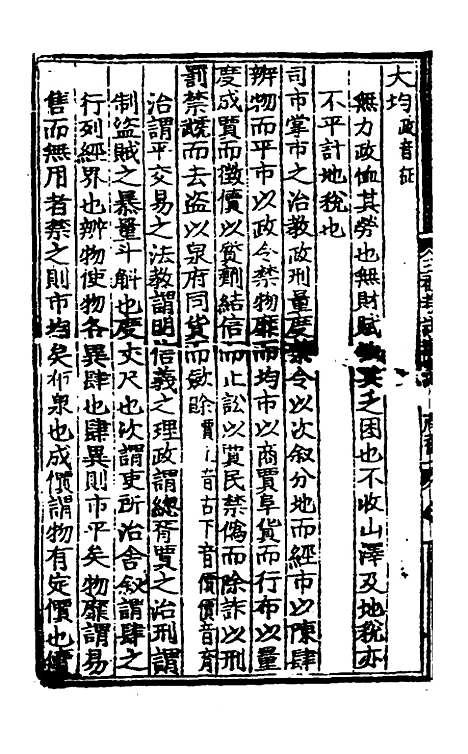 大均政音征
無力政恤其勞也無財賦乏困也不收山澤及地稅亦
不平計地稅也
司市掌市之治教政刑量度禁令以次叙分地而經市以陳肆
辨物而平市以政令禁物靡而均市以商賈阜貨而行布以量
度成賈而徵儥以質劑結信而止訟以賈民禁僞而除詐以刑
罰禁虣而去盜以泉府同貨而斂賒賈音古下音價儥音育
治謂平交易之法教謂明信義之理政謂總胥賈之治刑謂
制盜賊之暴量斗斛也度丈尺也次謂吏所治舍叙謂肆之
行列經界也辨物使物各異肆也肆異則市平矣物靡謂易
售而無用者禁之則市均矣布泉也成價謂物有定價也